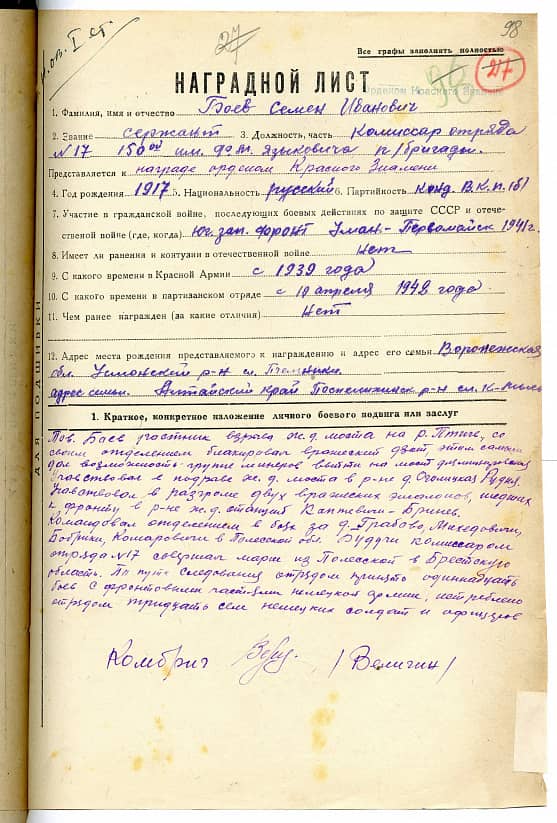 От. Iст.
27
98
Все графы заполнять полностью
27
36
Орденом Красного Знамени
НАГРАДНОЙ ЛИСТ
1. Фамилия, имя и отчество Баев Семен Иванович
2. Звание сержант 3. Должность, часть Комиссар отряда
№17 150ой им. языковича п/бригады.
Представляется к награде орденом Красного Знамени
4. Год рождения 1917 5. Национальность русский 6. Партийность канд. В.К.П.(б)
7. Участие в гражданской войне, последующих боевых действиях по защите СССР и отече-
ственной войне (где, когда) Юг. зап. фронт Уман-Первомайск 1941г.
8. Имеет ли ранения и контузии в отечественной войне нет
9. С какого времени в Красной Армии с 1939 года
10. С какого времени в партизанском отряде с 10 апреля 1942 года.
11. Чем ранее награжден (за какие отличия) Нет
12. Адрес места рождения представляемого к награждению и адрес его семьи Воронежская
обл. Усмонский р-н
адрес семьи. Алтайский край Поспелихинск р-н
ДЛЯ ПОДШИВКИ
1. Краткое, конкретное изложение личного боевого подвига или заслуг
Тов. Баев участник взрыва ж.д. моста на р. Птичь, со
своим отделением блакировал вражеский дзот, этим самым
дал возможность группе минеров выйти на мост
Учавствовал в подрыве ж.д. моста в р-не д. Рудня
Учавствовал в разгроме двух вражеских эшалонов, шедших
к фронту в р-не ж.д. станций Каптевичи-Бринев.
Командовал отделением в боях за д. Грабово, Михедовичи,
Бобрики, Комаровичи в Полесской обл. Будучи комиссаром
отряда №17 совершал марш из Полесской в Брестскую
область. По пути следования отрядом принято одиннадцать
боев с фронтовыми частями немецкой армии, истреблено
отрядом тридцать сем немецких солдат и офицеров
Комбриг /Величин/